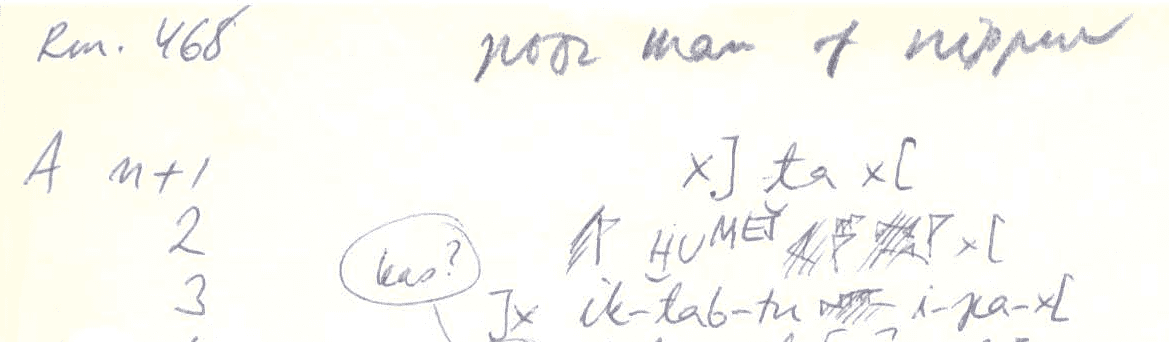 Rm. 468 poor man of nippur
A n+1 x] ta x[
2 ḪU MEŠ x[
3 kas? ]x ik-tab-tu i-pa-x[